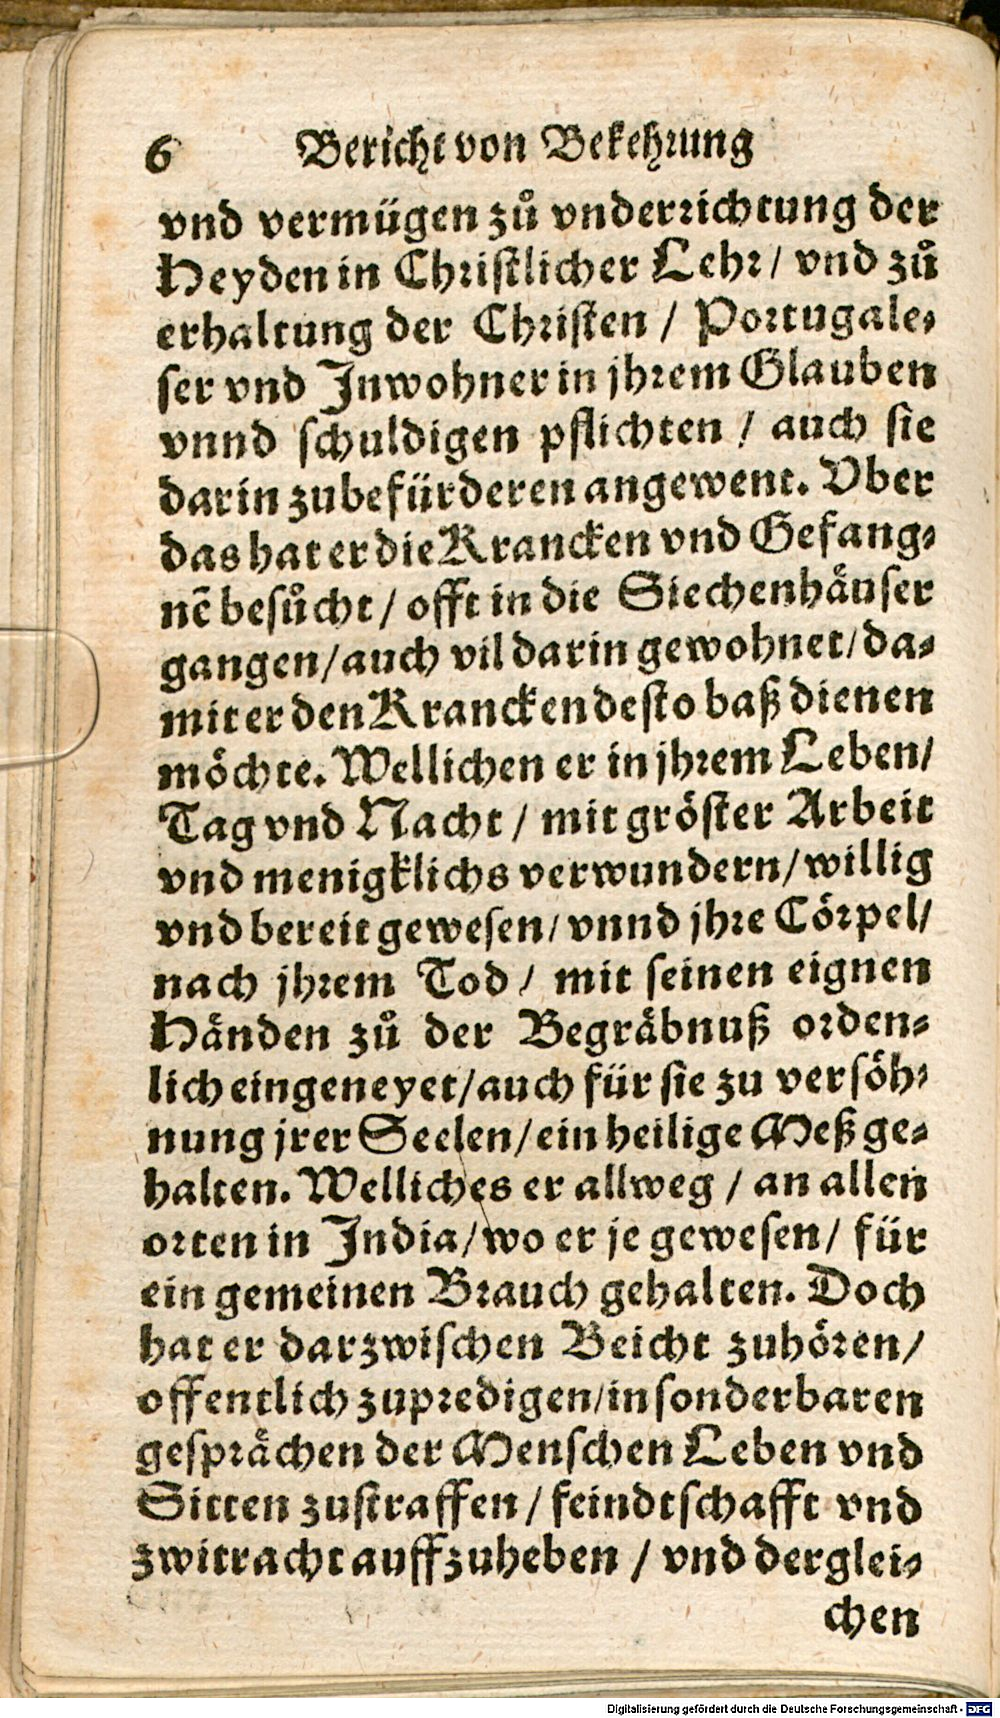 6 Bericht von Bekehrung
vnd vermügen zů vnderrichtung der
Heyden in Christlicher Lehr/ vnd zů
erhaltung der Christen / Portugale-
ser vnd Inwohner in jhrem Glauben
vnnd schuldigen pflichten / auch sie
darin zubefürderen angewent. Vber
das hat er die Krancken vnd Gefang-
nẽ besůcht / offt in die Siechenhäuser
gangen/ auch vil darin gewohnet/ da-
mit er den Krancken desto baß dienen
möchte. Wellichen er in jhrem Leben/
Tag vnd Nacht / mit gröster Arbeit
vnd menigklichs verwundern/ willig
vnd bereit gewesen/ vnnd jhre Cörpel/
nach jhrem Tod / mit seinen eignen
Händen zů der Begräbnuß orden-
lich eingeneyet/ auch für sie zu versöh-
nung jrer Seelen/ ein heilige Meß ge-
halten. Welliches er allweg / an allen
orten in India/ wo er je gewesen/ für
ein gemeinen Brauch gehalten. Doch
hat er darzwischen Beicht zuhören/
offentlich zupredigen/ in sonderbaren
gesprächen der Menschen Leben vnd
Sitten zustraffen / feindtschafft vnd
zwitracht auffzuheben / vnd derglei-
chen
Digitalisierung gefördert durch die Deutsche Forschungsgemeinschaft - DFG